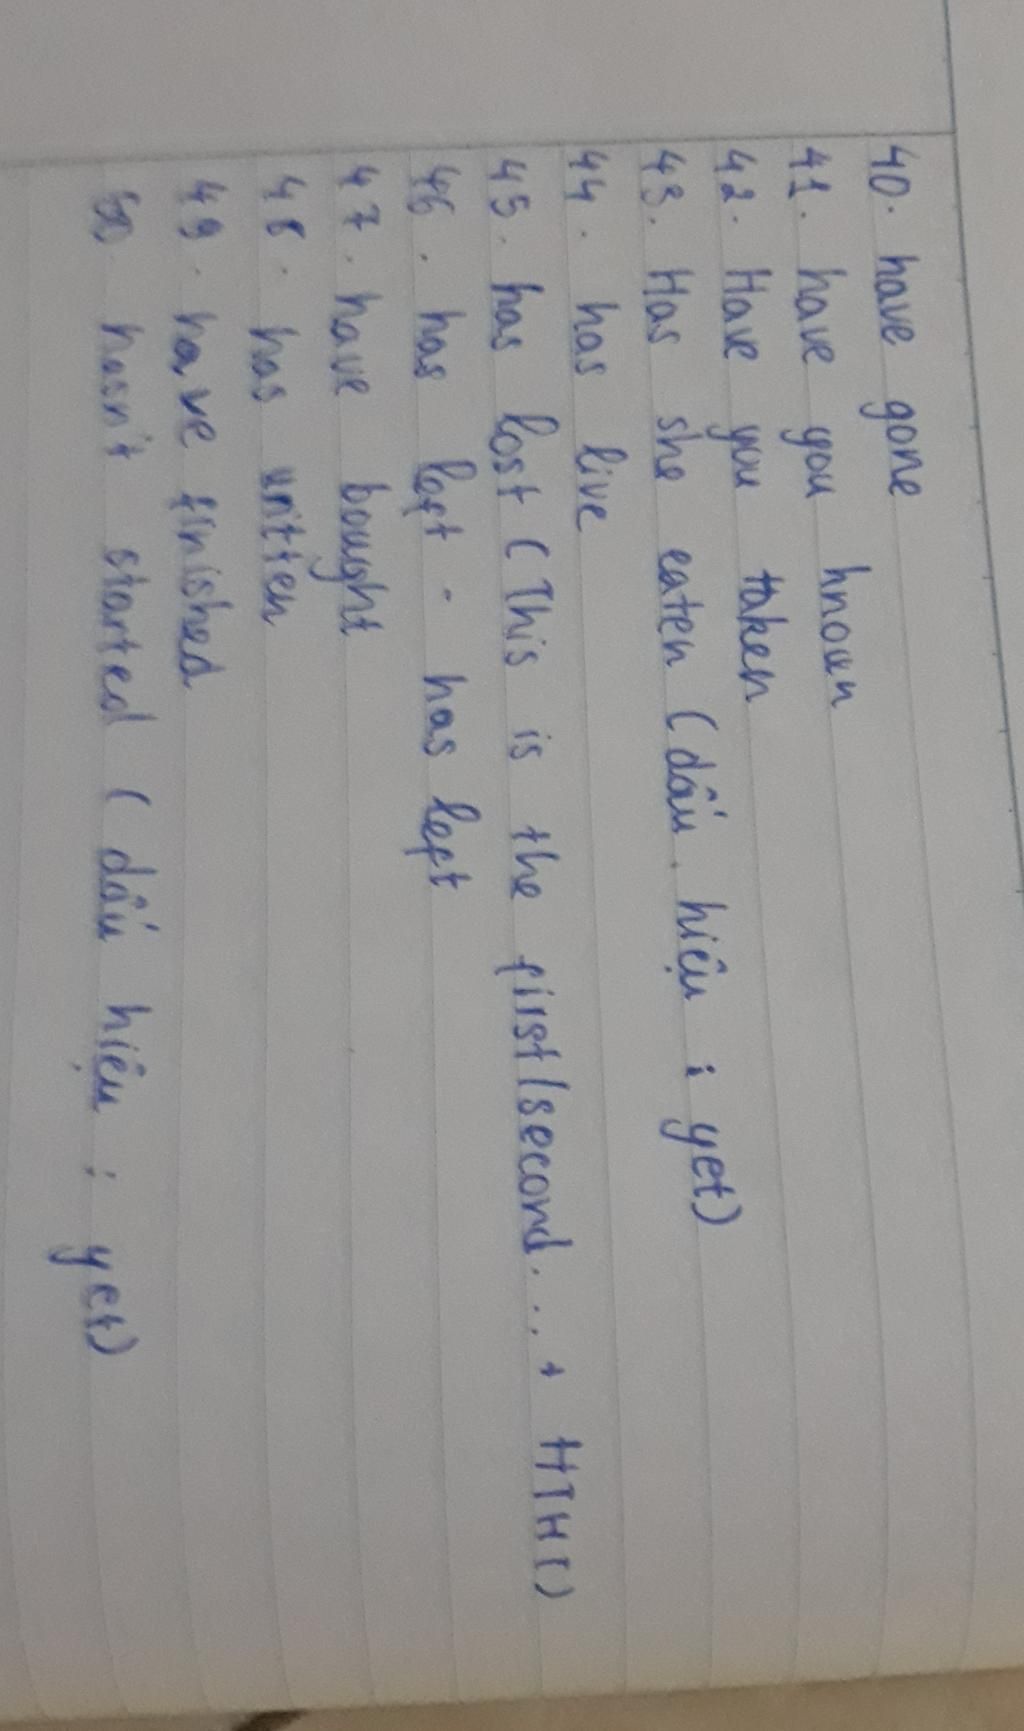 40. have gone
41. have you known
42. Have you taken
43. Has she eaten (dấu hiệu : yet)
44. has live
45. has lost (This is the first/second... + HTHT)
46. has left - has left
47. have bought
48. has written
49. have finished
50. hasn't started (dấu hiệu : yet)